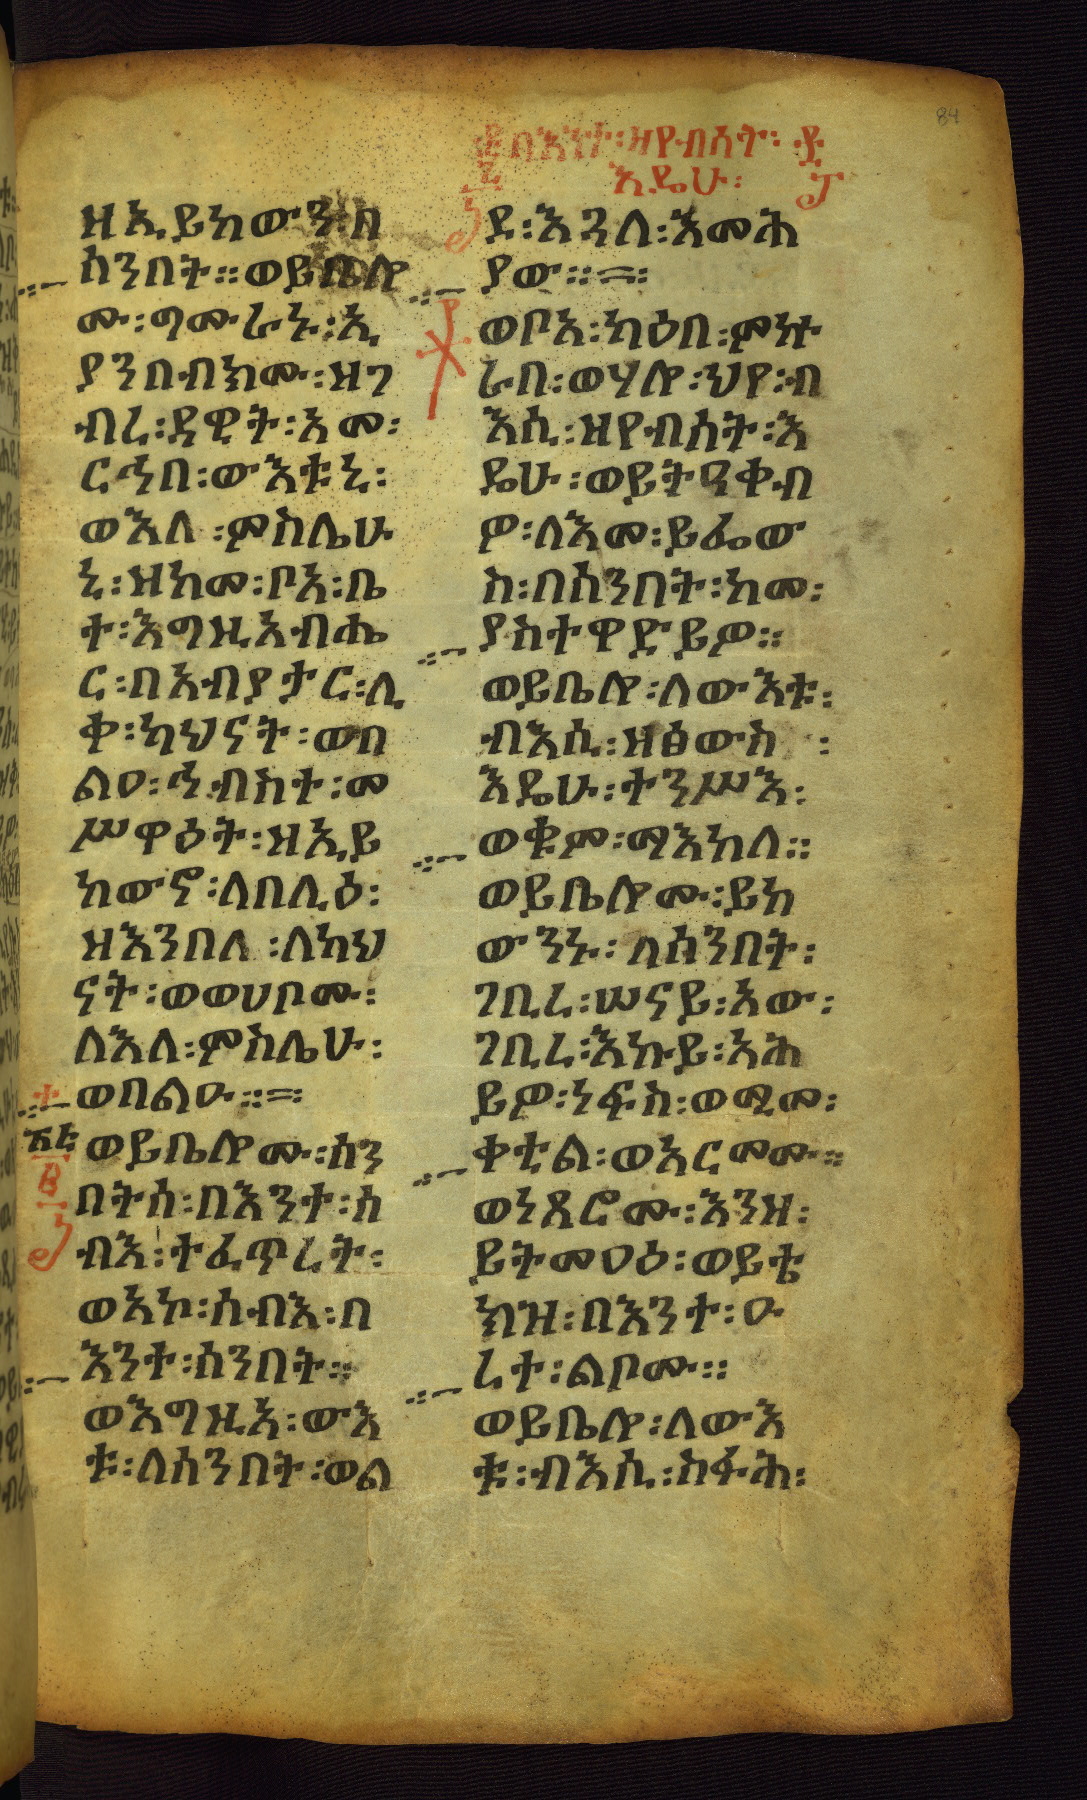 84
በእንተ፡ዘየብሰት፡
እዴሁ፡
ዘኢይከውን፡በ
ሰንበት። ወይቤሎ
ሙ፡ግሙራኑ፡ኢ
ያንበብክሙ፡ዘገ
ብረ፡ዳዊት፡አመ፡
ርኅበ፡ውእቱኒ፡
ወእለ፡ምስሌሁ
ኒ፡ዘከመ፡ቦአ፡ቤ
ተ፡እግዚአብሔ
ር፡በአብያታር፡ሊ
ቀ፡ካህናት፡ወበ
ልዐ፡ኅብስተ፡መ
ሥዋዕት፡ዘኢይ
ከውኖ፡ለበሊዕ፡
ዘእንበለ፡ለካህ
ናት፡ወወሀቦሙ፡
ለእለ፡ምስሌሁ፡
ወበልዑ።
ወይቤሎሙ፡ሰን
በትሰ፡በእንተ፡ሰ
ብእ፡ተፈጥረት፡
ወአኮ፡ሰብእ፡በ
እንተ፡ሰንበት።
ወእግዚአ፡ውእ
ቱ፡ለሰንበት፡ወል
ደ፡እጓለ፡እመሕ
ያው።
ወቦአ፡ካዕበ፡ምኵ
ራበ፡ወሃሎ፡ህየ፡ብ
እሲ፡ዘየብሰት፡እ
ዴሁ፡ወይትዓቀብ
ዎ፡ለእመ፡ይፌው
ስ፡በሰንበት፡ከመ፡
ያስተዋድይዎ።
ወይቤሎ፡ለውእቱ፡
ብእሲ፡ዘፅውስ፡
እዴሁ፡ተንሥእ፡
ወቁም፡ማእከለ።
ወይቤሎሙ፡ይከ
ውንኑ፡ በሰንበት፡
ገቢረ፡ሠናይ፡አው፡
ገቢረ፡እኩይ፡አሕ
ይዎ፡ነፍስ፡ወሚመ፡
ቀቲል፡ወአርመሙ።
ወነጸሮሙ፡እንዘ፡
ይትመዐዕ፡ወይቴ
ክዝ፡በእንተ፡ዑ
ረተ፡ልቦሙ።
ወይቤሎ፡ለውእ
ቱ፡ብእሲ፡ስፋሕ፡